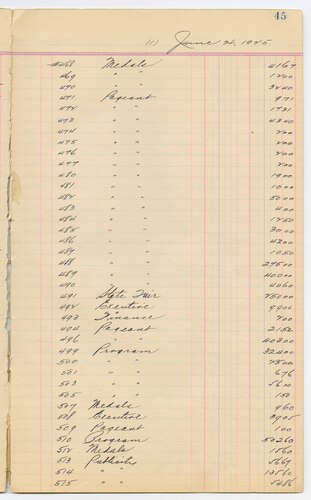 45
(1) June 21, 1925.
#468 Medals 4167
469 " " 1200
470 " " 3240
471 Pageant 971
472 " " 1731
473 " " 4340
474 " " 200
475 " " 200
476 " " 200
477 " " 200
480 " " 1900
481 " " 1000
482 " " 5000
483 " " 400
484 " " 1250
485 " " 3000
486 " " 4200
487 " " 1050
488 " " 27500
489 " " 40000
490 " " 4060
491 State Fair 75000
492 Executive 9906
493 Finance 200
494 Pageant 2152
496 " " 40300
499 Program 32400
500 " " 7500
501 " " 676
503 " " 5600
505 " " 150
507 Medals 960
508 Executive 3905
509 Pageant 100
510 Program 50260
512 Medals 1560
513 Publicity 5667
514 " " 13560
515 " " 5486